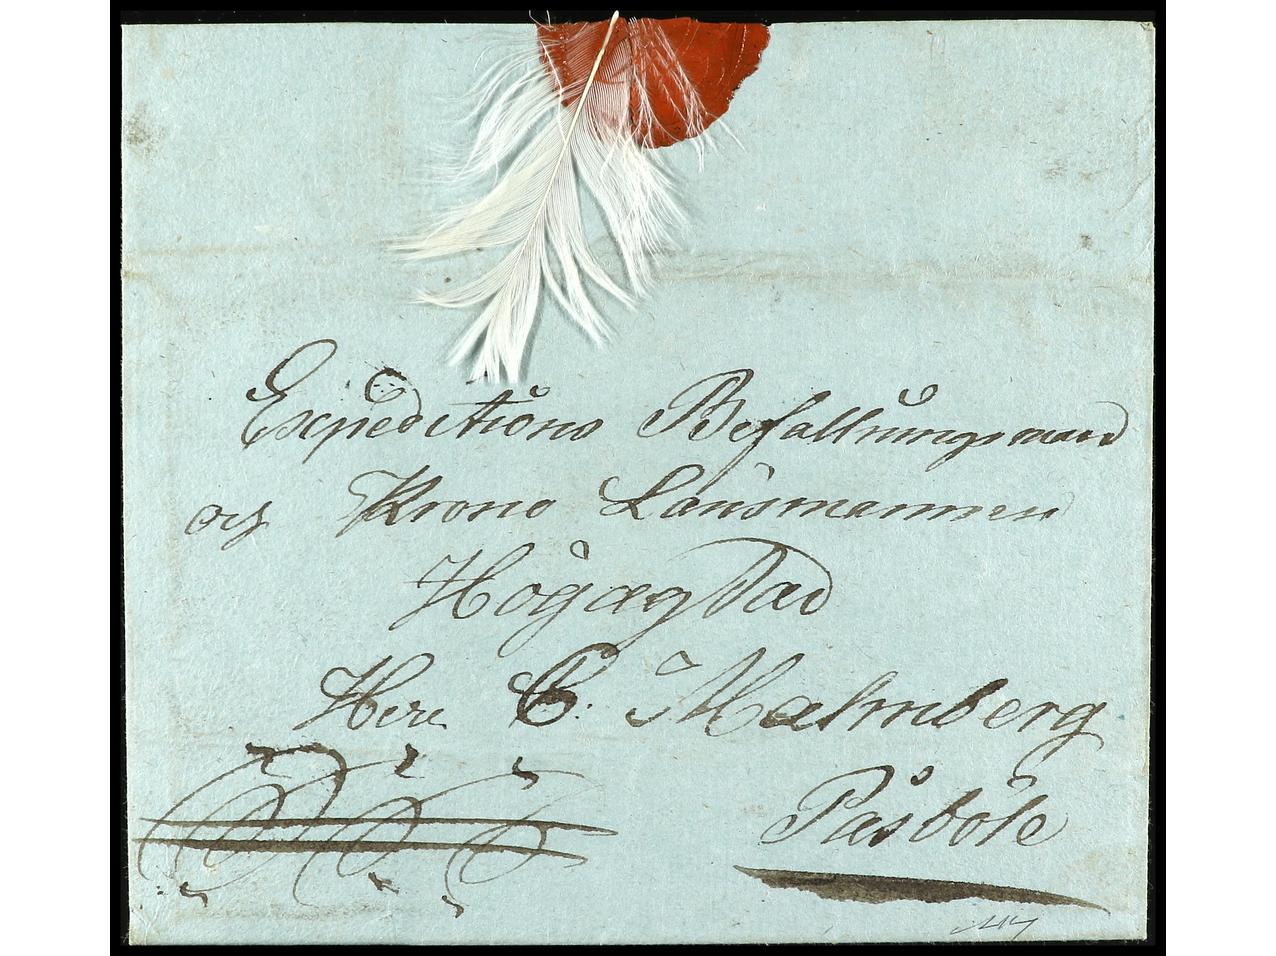 Expeditions Befallningsmand
och Krono Länsmannen
Högægtad
Herr C. Malmberg
Påsböle